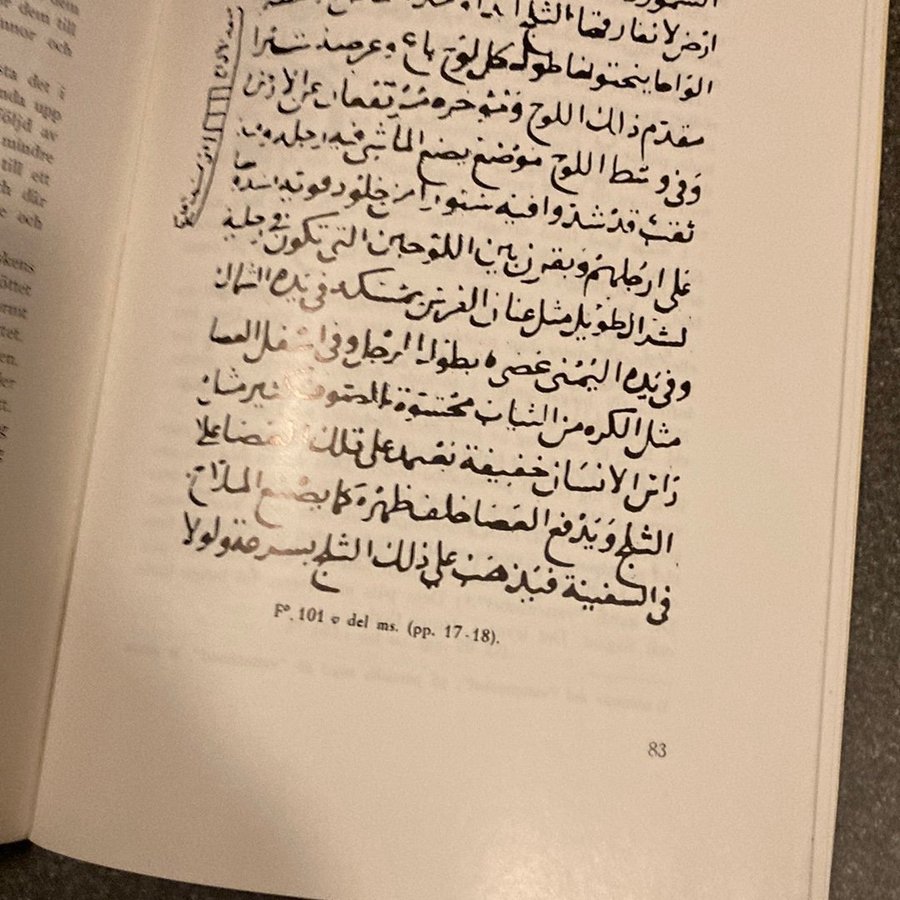 dem till
och
det i
upp
följd av
mindre
till ett
där
och
ارض لا يفارقها الثلج ابدا
الواحا ينحتونها طول كل لوح باع وعرضه شبرا
مقدم ذالك اللوح ومؤخره مرتفعان عن الارض
وفي وسط اللوح موضع يضع الماشي فيه رجله وفيه
ثقب قد شدوا فيه سيورا من جلود قوية يشدها
على ارجلهم ويقرن بين اللوحين التي تكون في رجليه
بشد طويل مثل عنان الفرس يمسكه في يده الشمال
وفي يده اليمنى عصى بطول الرجل وفي اسفل العصا
مثل الكره من الثياب محشوة بالصوف كثير مثل
راس الانسان خفيفة يعتمد على تلك العصا على
الثلج ويدفع العصا خلف ظهره كما يصنع الملاح
في السفينة فيذهب على ذلك الثلج بسرعة ولولا
Fº. 101 v del ms. (pp. 17-18).
83